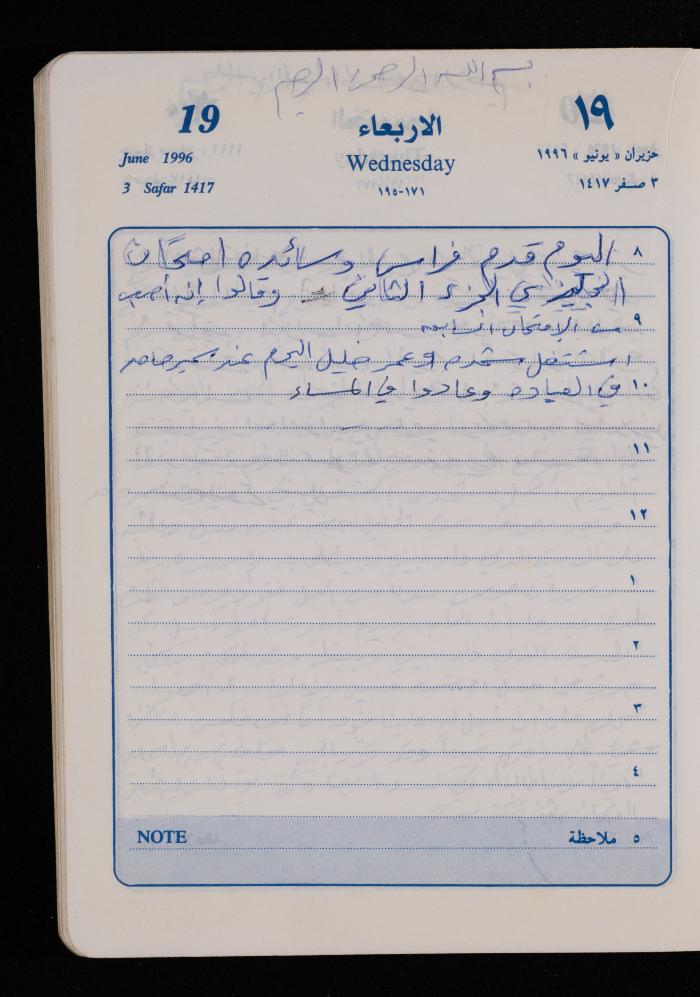 بسم الله الرحمن الرحيم
19 الاربعاء ١٩
June 1996 Wednesday حزيران « يونيو » ١٩٩٦
3 Safar 1417 ١٧١-١٩٥ ٣ صفر ١٤١٧
٨ اليوم قدم فراس وسائده امتحان
انجليزي الجزء الثاني وقالوا إنه أصعب
٩ من الإمتحان السابق
اشتغل وعمر خليل اليوم عند سمير
١٠ في العياده وعادوا في المساء
١١
١٢
١
٢
٣
٤
NOTE ٥ ملاحظة